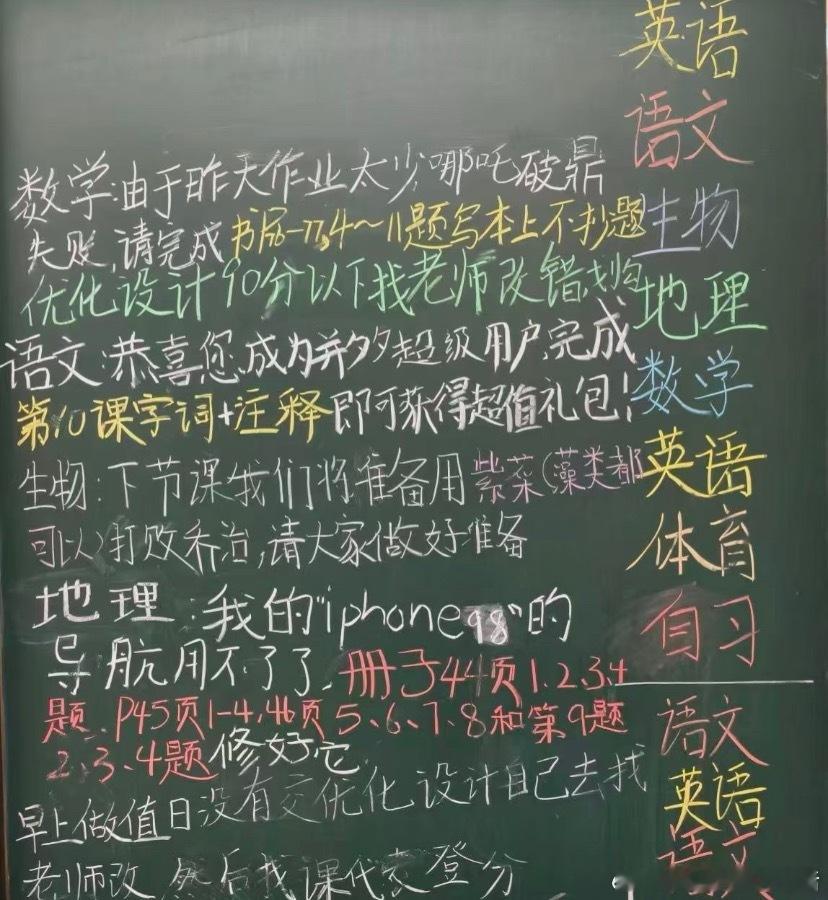 数学:由于昨天作业太少,哪吒破鼎
失败,请完成书,4~11题写本上不抄题
优化设计90分以下找老师改错
语文:恭喜您,成为并夕夕超级用户,完成
第10课字词+注释即可获得超值礼包!
生物:下节课我们将准备用紫菜(藻类都
可以)打败乔治,请大家做好准备
地理:我的"iphone98"的
导航用不了了,册子44页1.2.3.4
题、P45页1-4,46页5、6、7、8和第9题
2、3、4题修好它
早上做值日没有交优化设计自己去找
老师改,然后找课代表登分
英语
语文
生物
地理
数学
英语
体育
自习
语文
英语
语文